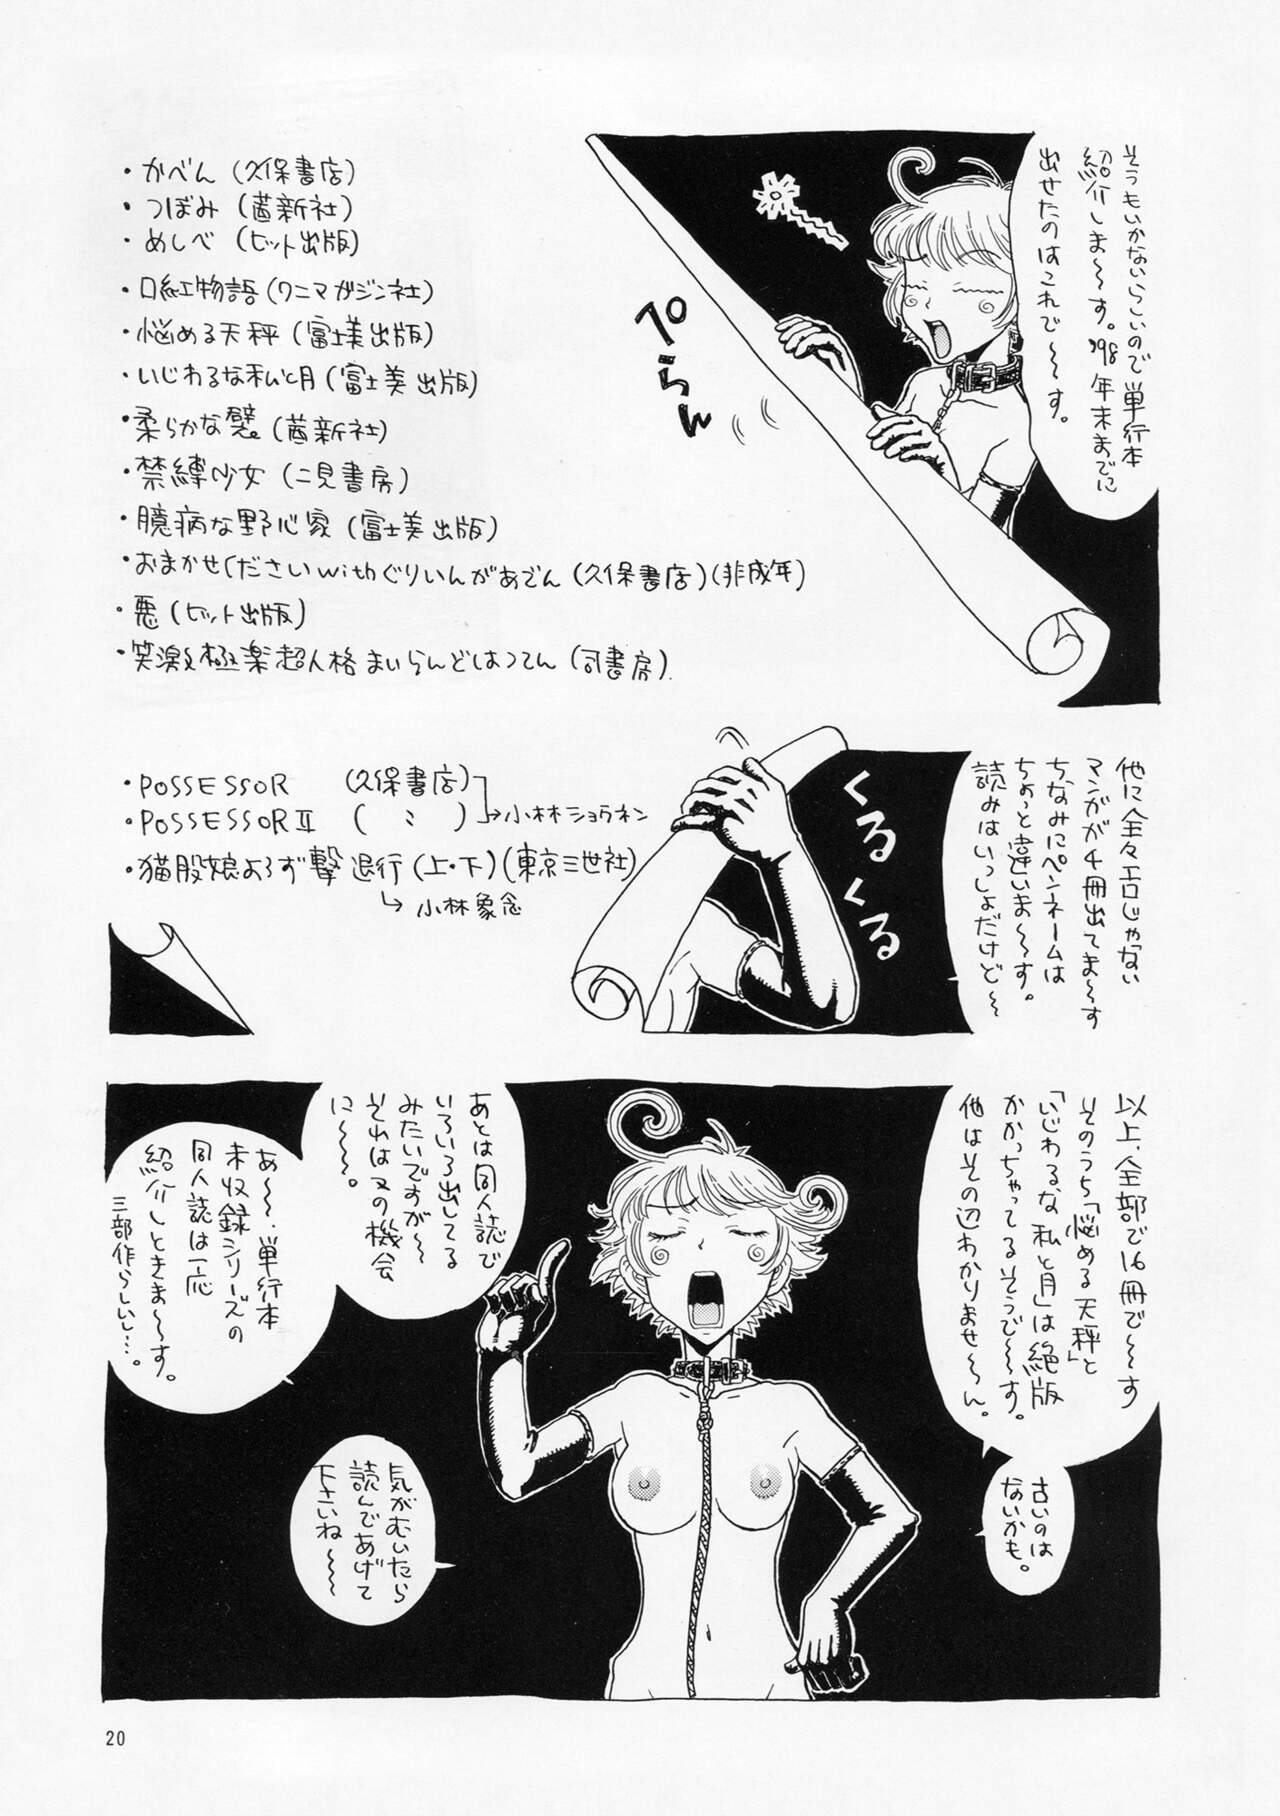 そうもいかないらしいので単行本
紹介しま〜〜す。'98年末までに
出せたのはこれで〜〜す。
ペらん
・かべん(久保書店)
・つぼみ(茜新社)
・めしべ(ヒット出版)
・口紅物語(ワニマガジン社)
・悩める天秤(富士美出版)
・いじわるな私と月(富士美出版)
・柔らかな甓。(茜新社)
・禁縛少女(二見書房)
・臆病な野心家(富士美出版)
・おまかせくださいwithぐりいんがあでん(久保書店)(非成年)
・悪(ヒット出版)
・笑激極楽超人格まいらんどはつてん(司書房)
他に全々エロじゃない
マンガが4冊出てま〜〜す
ちなみにペンネームは
ちょっと違いま〜〜す。
読みはいっしょだけど〜〜
くるくる
・POSSESSOR (久保書店)
・POSSESSORⅡ ( 〃 )
→小林ショウネン
・猫股娘よろず撃退行(上・下)(東京三世社)
→小林象念
以上、全部で16冊で〜〜す
そのうち「悩める天秤」と
「いじわるな私と月」は絶版
かかっちゃってるそうで〜〜す。
他はその辺わかりませ〜〜ん。
古いのは
ないかも。
あとは同人誌で
いろいろ出してる
みたいですが〜〜
それは又の機会
に〜〜〜。
あ〜〜、単行本
未収録シリーズの
同人誌は一応
紹介しときま〜〜す。
三部作らしいし…。
気がむいたら
読んであげて
下さいね〜〜〜
20